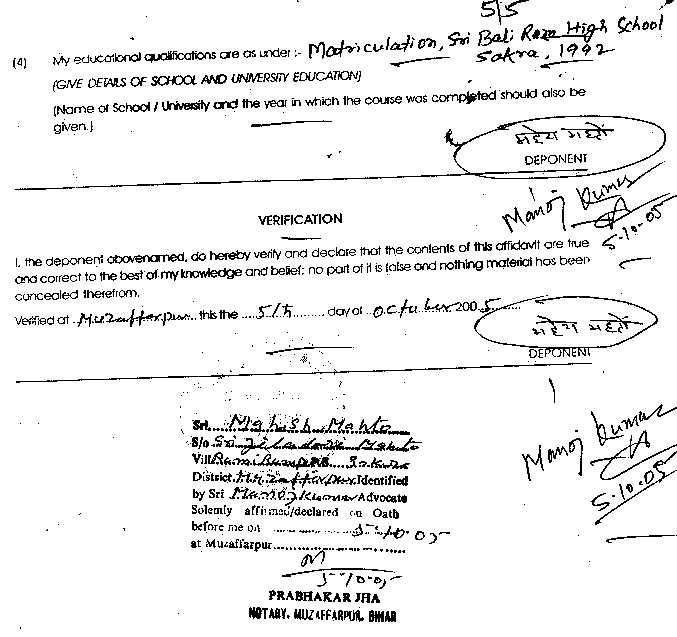 5/5
(4) My educational qualifications are as under :- Matriculation, Sri Bali Ram High School
Sakra, 1992
(GIVE DETAILS OF SCHOOL AND UNIVERSITY EDUCATION)
(Name of School / University and the year in which the course was completed should also be
given.)
महेश महतो
DEPONENT
Manoj Kumar
5-10-05
VERIFICATION
I, the deponent abovenamed, do hereby verify and declare that the contents of this affidavit are true
and correct to the best of my knowledge and belief; no part of it is false and nothing material has been
concealed therefrom.
Verified at Muzaffarpur this the 5th day of October 2005
महेश महतो
DEPONENT
Manoj Kumar
5-10-05
Sri Mahesh Mahto
S/o Sri Mahto
Vill Sakra
District Muzaffarpur Identified
by Sri Manoj Kumar Advocate
Solemly affirmed/declared on Oath
before me on 5-10-05
at Muzaffarpur
5-10-05
PRABHAKAR JHA
NOTARY, MUZAFFARPUR, BIHAR